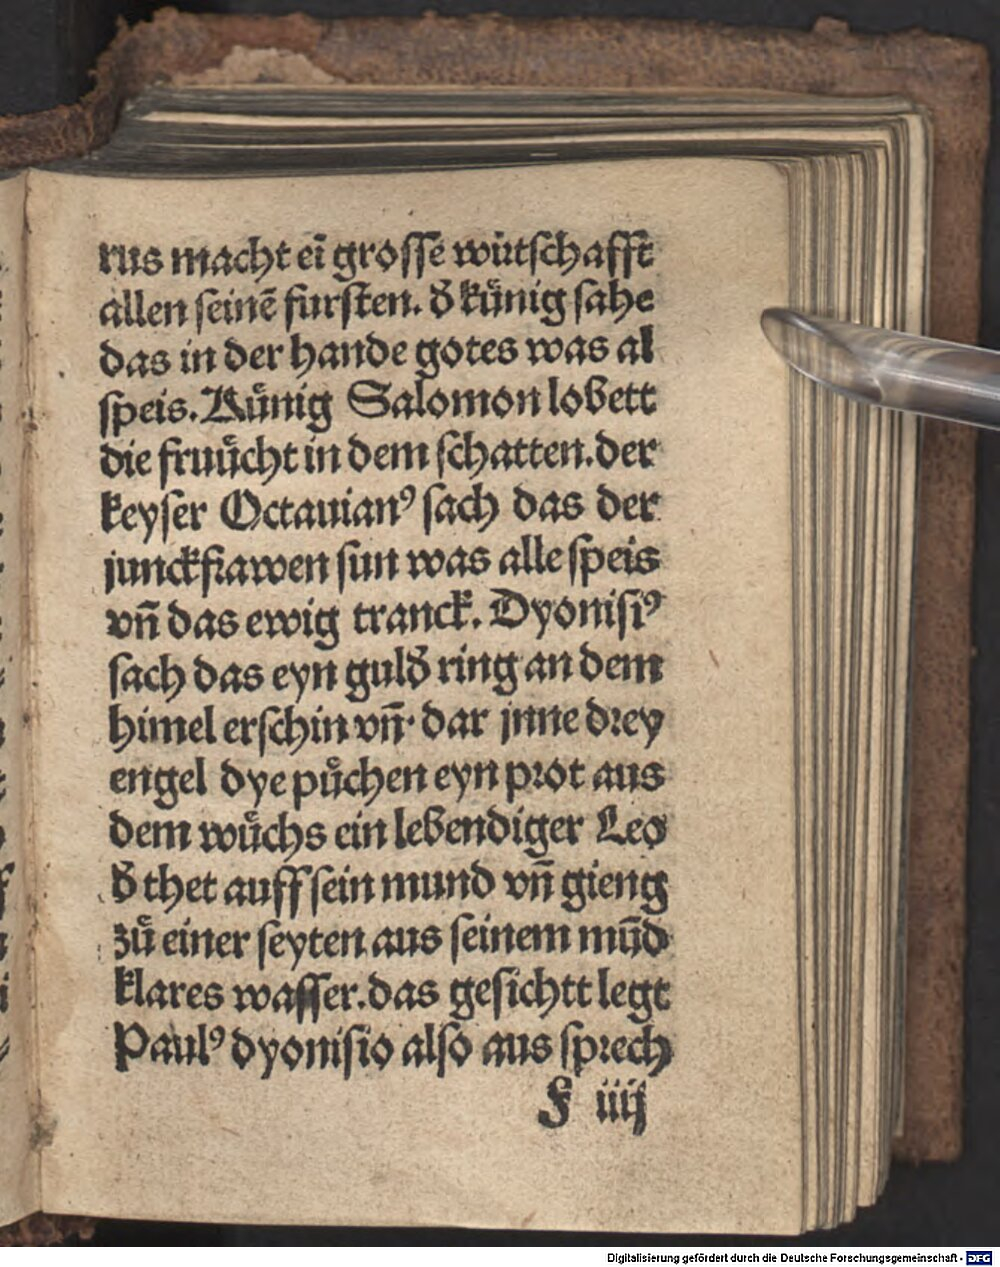 rus macht eī grosse wůtschafft
allen seinē fursten. d̕ kůnig sahe
das in der hande gotes was al
speis. Kůnig Salomon lobett
die fruůcht in dem schatten. der
keyser Octauianꝰ sach das der
junckfrawen sun was alle speis
vn̄ das ewig tranck. Dyonisiꝰ
sach das eyn guld̕ ring an dem
himel erschin vn̄· dar jnne drey
engel dye půchen eyn prot aus
dem wůchs ein lebendiger Leo
d̕ thet auff sein mund vn̄ gieng
zů einer seyten aus seinem mūd
klares wasser. das gesichtt legt
Paulꝰ dyonisio also aus sprech
F iiij
Digitalisierung gefördert durch die Deutsche Forschungsgemeinschaft - DFG